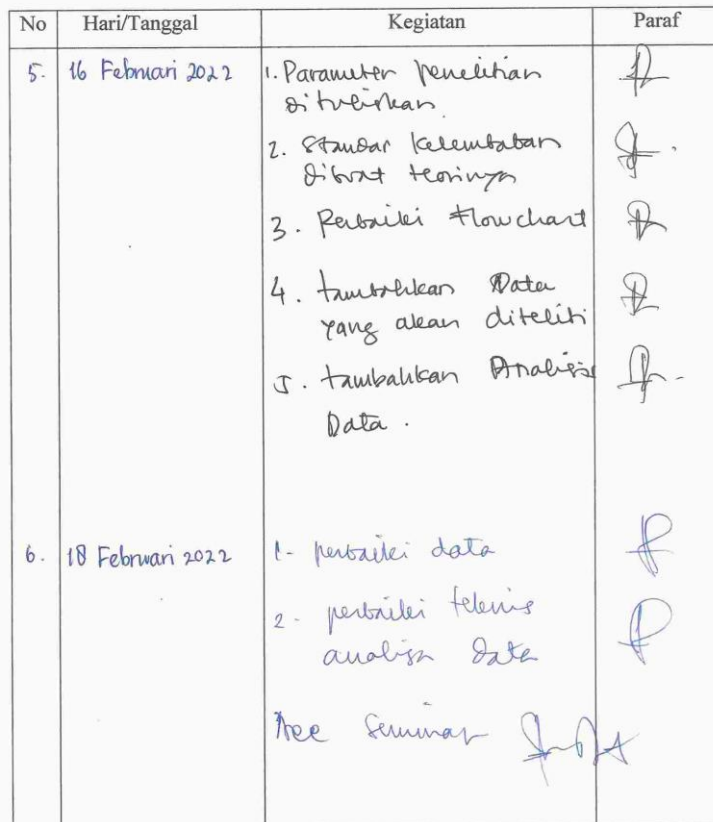 No Hari/Tanggal Kegiatan Paraf
5. 16 Februari 2022 1. Parameter penelitian
dituliskan
2. Standar kelembaban
dibuat teorinya
3. Perbaiki Flowchart
4. tambahkan Data
yang akan diteliti
5. tambahkan Analisis
Data.
6. 18 Februari 2022 1- perbaiki data
2- perbaiki teknis
analisa data
Acc Seminar